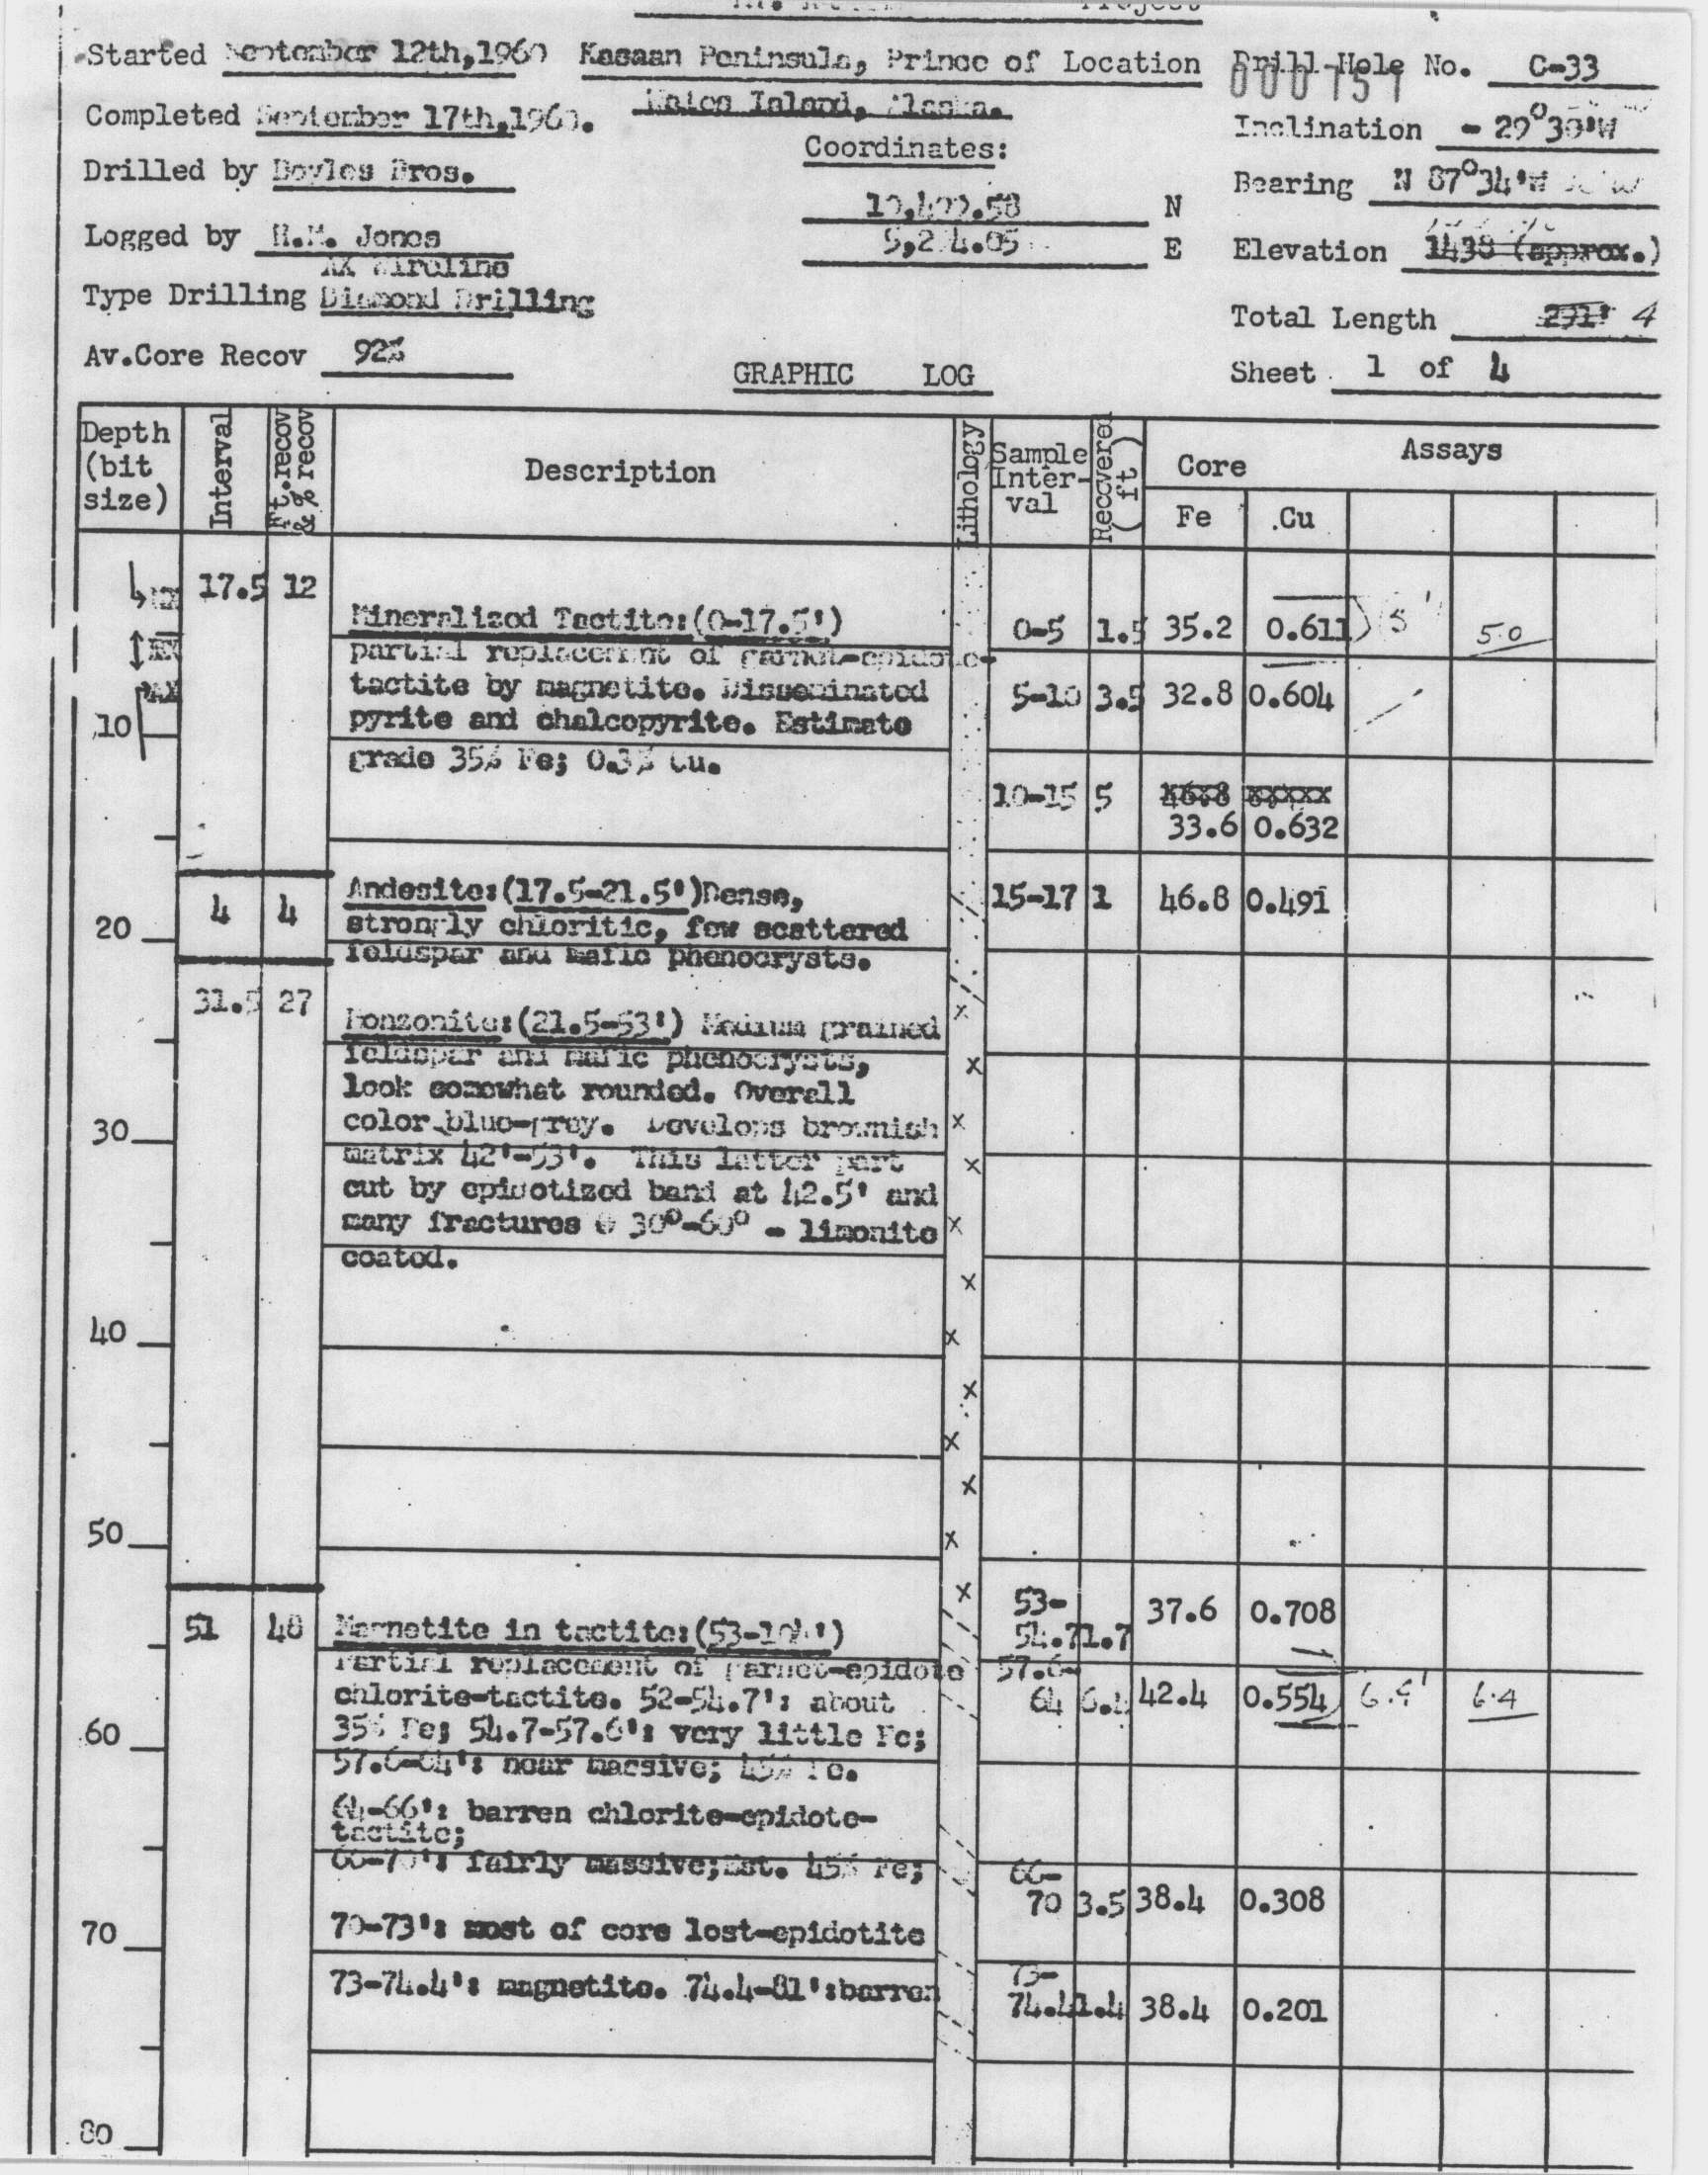 Project
Started September 12th,1960 Kasaan Peninsula, Prince of Location Drill Hole No. C-33
000751
Wales Island, Alaska.
Completed September 17th,1960. Inclination - 29°30'W
Coordinates:
Drilled by Boyles Bros. Bearing N 87°34'W
N
Logged by H.M. Jones E Elevation 1438 (approx.)
AX Wireline
Type Drilling Diamond Drilling Total Length 291' 4
Av.Core Recov 92%
GRAPHIC LOG Sheet 1 of 4
Depth (bit size) Interval Ft.recov & % recov Description Lithology Sample Inter- val Recovered (ft) Core Assays
Fe Cu
17.5 12
Mineralized Tactite:(0-17.5') 0-5 1.5 35.2 0.611 5' 5.0
partial replacement of garnet-epidote-
tactite by magnetite. Disseminated 5-10 3.5 32.8 0.604
10 pyrite and chalcopyrite. Estimate
grade 35% Fe; 0.3% Cu.
10-15 5 46.8
33.6 0.632
Andesite:(17.5-21.5')Dense, 15-17 1 46.8 0.491
4 4
20 strongly chloritic, few scattered
feldspar and mafic phenocrysts.
31.5 27
Monzonite:(21.5-53') Medium grained
feldspar and mafic phenocrysts,
look somewhat rounded. Overall
30 color blue-grey. Develops brownish
matrix 42'-53'. This latter part
cut by epidotized band at 42.5' and
many fractures @ 30°-60° - limonite
coated.
40
50
53-
54.7 1.7 37.6 0.708
51 48 Magnetite in tactite:(53-104')
Partial replacement of garnet-epidote 57.6-
chlorite-tactite. 52-54.7': about 64 6.4 42.4 0.554 6.4' 6.4
60 35% Fe; 54.7-57.6': very little Fe;
57.6-64': near massive; 45% Fe.
64-66': barren chlorite-epidote-
tactite;
66-70': fairly massive;Est. 45% Fe; 66-
70 3.5 38.4 0.308
70 70-73': most of core lost-epidotite
73-74.4': magnetite. 74.4-81':barren 73-
74.4 1.4 38.4 0.201
80